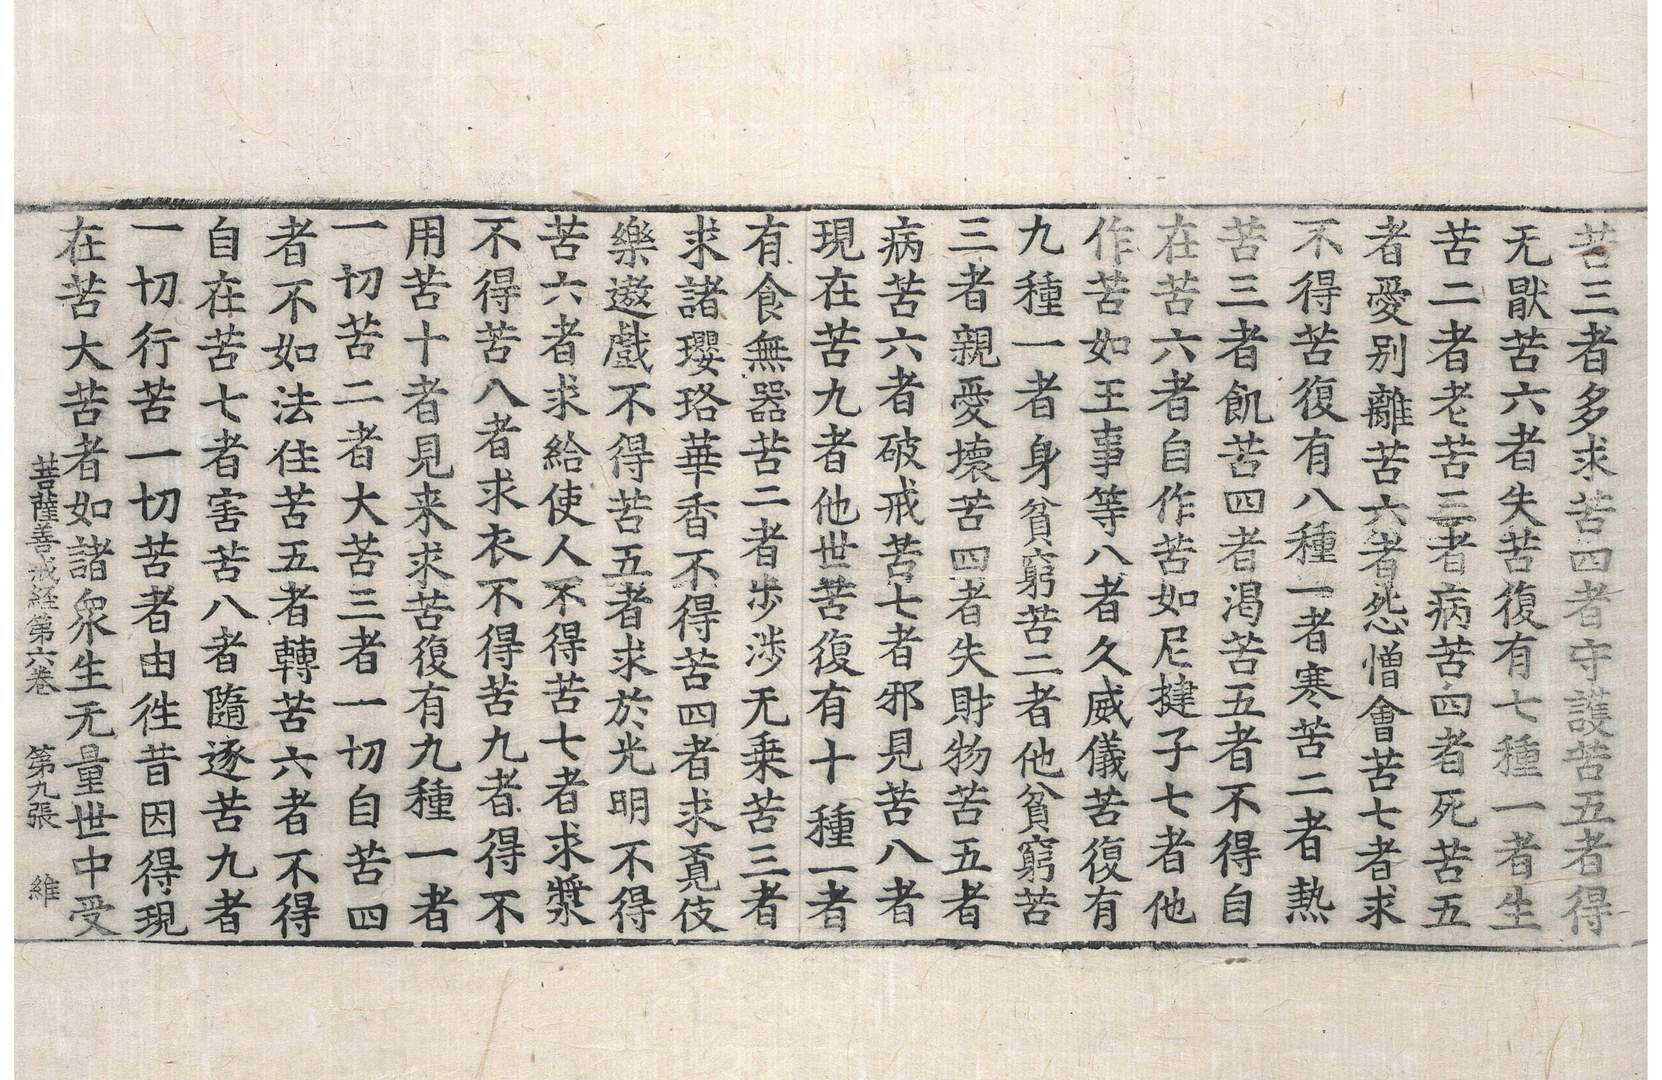 苦三者多求苦四者守護苦五者得
无猒苦六者失苦復有七種一者生
苦二者老苦三者病苦四者死苦五
者愛别離苦六者怨憎會苦七者求
不得苦復有八種一者寒苦二者熱
苦三者飢苦四者渴苦五者不得自
在苦六者自作苦如尼揵子七者他
作苦如王事等八者久威儀苦復有
九種一者身貧窮苦二者他貧窮苦
三者親愛壞苦四者失財物苦五者
病苦六者破戒苦七者邪見苦八者
現在苦九者他世苦復有十種一者
有食無器苦二者步涉无乗苦三者
求諸瓔珞華香不得苦四者求覔伎
樂遨戲不得苦五者求於光明不得
苦六者求給使人不得苦七者求漿
不得苦八者求衣不得苦九者得不
用苦十者見来求苦復有九種一者
一切苦二者大苦三者一切自苦四
者不如法住苦五者轉苦六者不得
自在苦七者害苦八者隨逐苦九者
一切行苦一切苦者由徃昔因得現
在苦大苦者如諸衆生无量世中受
菩薩善戒経第六卷 第九張 維